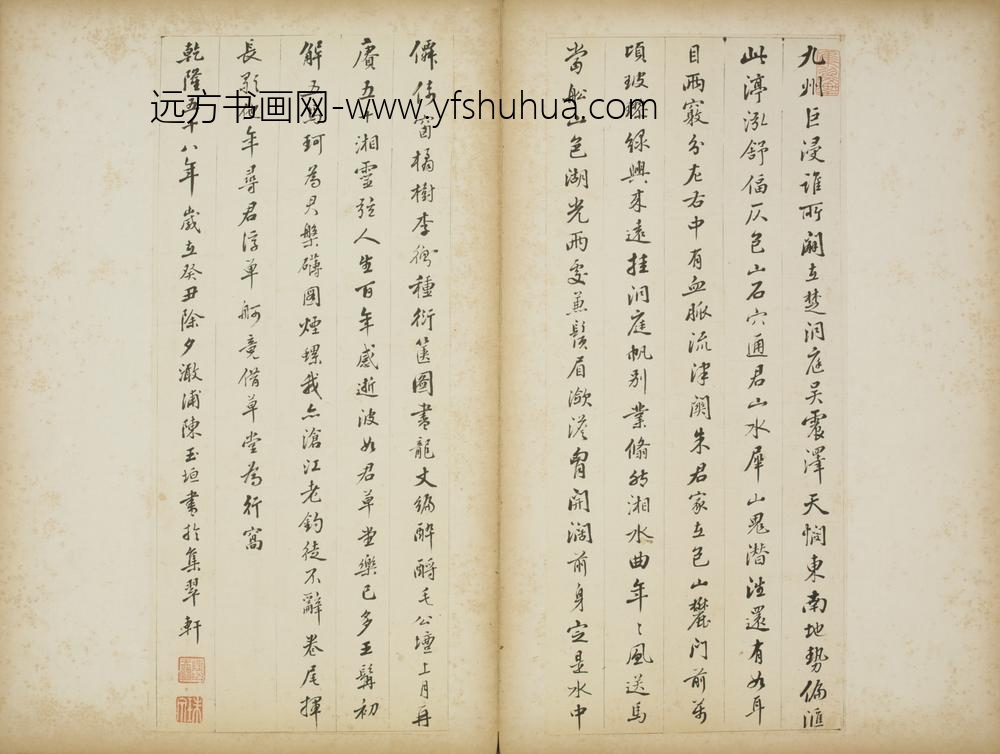 九州巨浸誰所開在楚洞庭吳震澤天憫東南地勢偏匯
此渟泓舒偪仄包山石穴通君山水犀山鬼潛往還有如耳
目兩竅分左右中有血脈流津關朱君家在包山麓門前萬
頃玻瓈綠興來遠挂洞庭帆別業翛然湘水曲年〻風送馬
當船山色湖光兩處兼鬚眉漵瀁胷開闊前身定是水中
僊倚窗橘樹李衡種衍篋圖書龍丈編酔酹毛公壇上月再
賡五十湘靈弦人生百年感逝波如君草堂樂已多玉髯初
解五馬珂為君槃礴圖煙螺我亦滄江老釣徒不辭卷尾揮
長歌他年尋君浮單舸竟借草堂為行窩
乾隆五十八年歲在癸丑除夕澉浦陳玉垣書於集翠軒
远方书画网-www.yfshuhua.com